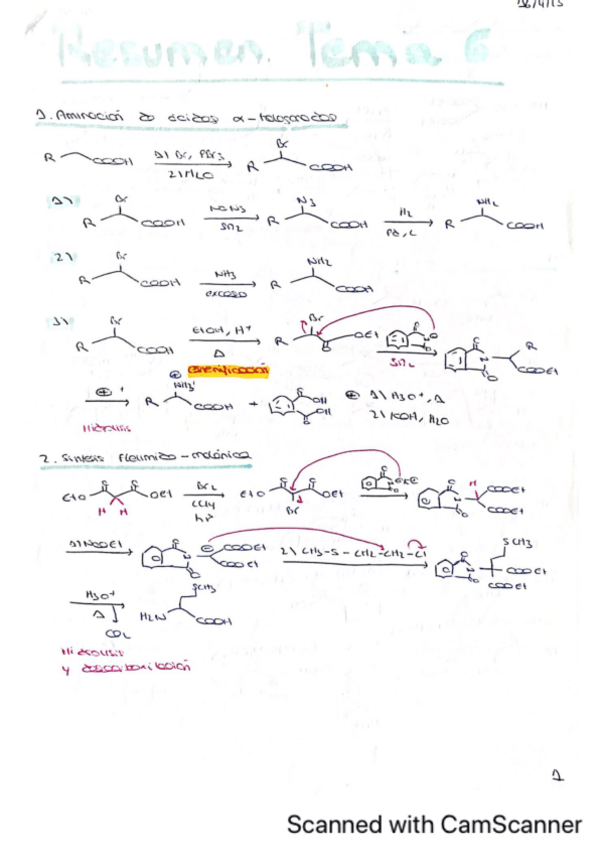 26/4/23
Resumen Tema 6
1. Aminación de ácidos α-halogenados
R COOH 1) Br2, PBr3 2) H2O R Br COOH
1) R Br COOH NaN3 SN2 R N3 COOH H2 Pd, C R NH2 COOH
2) R Br COOH NH3 exceso R NH2 COOH
3) R Br COOH EtOH, H+ Δ R Br O OEt SN2 R COOEt
esterificación
⊕ R NH3 COOH + OH OH ⊕ 1) H3O+, Δ
2) KOH, H2O
Hidrólisis
2. Síntesis ftalimido-malónica
EtO O O OEt H H Br2 CCl4 hν EtO O O OEt Br H COOEt COOEt
1) NaOEt COOEt COOEt 2) CH3-S-CH2-CH2-Cl SCH3 COOEt COOEt
H3O+ Δ CO2 H2N SCH3 COOH
Hidrólisis
y descarboxilación
1
Scanned with CamScanner